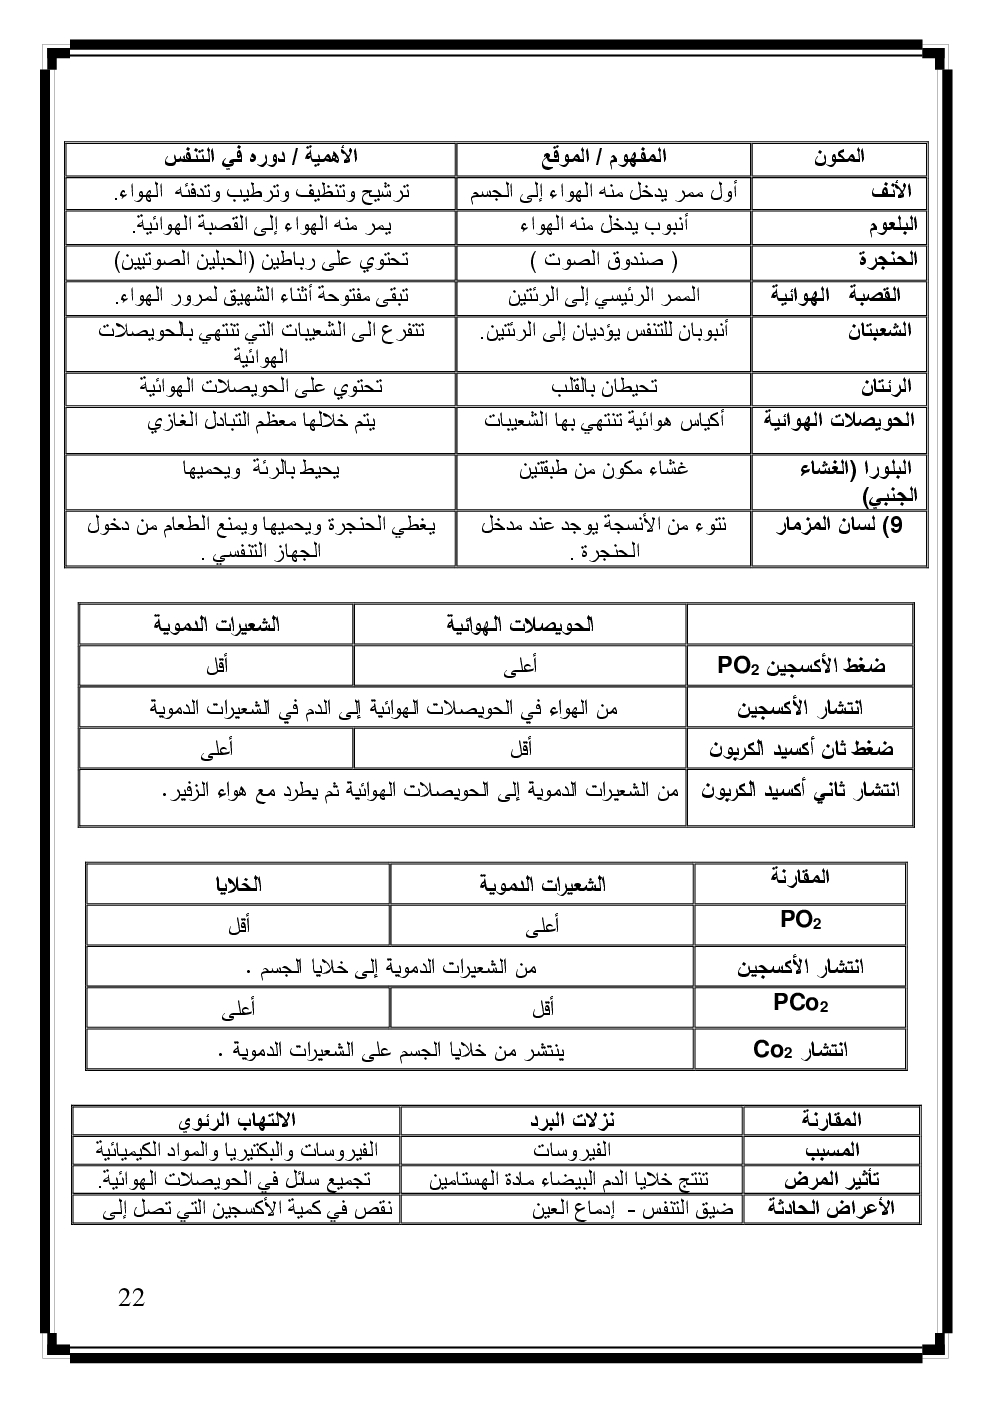 المكون المفهوم / الموقع الأهمية / دوره في التنفس
الأنف أول ممر يدخل منه الهواء إلى الجسم ترشيح وتنظيف وترطيب وتدفئه الهواء.
البلعوم أنبوب يدخل منه الهواء يمر منه الهواء إلى القصبة الهوائية.
الحنجرة ( صندوق الصوت ) تحتوي على رباطين (الحبلين الصوتيين)
القصبة الهوائية الممر الرئيسي إلى الرئتين تبقى مفتوحة أثناء الشهيق لمرور الهواء.
الشعبتان أنبوبان للتنفس يؤديان إلى الرئتين. تتفرع الى الشعيبات التي تنتهي بالحويصلات
الهوائية
الرئتان تحيطان بالقلب تحتوي على الحويصلات الهوائية
الحويصلات الهوائية أكياس هوائية تنتهي بها الشعيبات يتم خلالها معظم التبادل الغازي
البلورا (الغشاء غشاء مكون من طبقتين يحيط بالرئة ويحميها
الجنبي)
9) لسان المزمار نتوء من الأنسجة يوجد عند مدخل يغطي الحنجرة ويحميها ويمنع الطعام من دخول
الحنجرة . الجهاز التنفسي .
الحويصلات الهوائية الشعيرات الدموية
ضغط الأكسجين PO2 أعلى أقل
انتشار الأكسجين من الهواء في الحويصلات الهوائية إلى الدم في الشعيرات الدموية
ضغط ثان أكسيد الكربون أقل أعلى
انتشار ثاني أكسيد الكربون من الشعيرات الدموية إلى الحويصلات الهوائية ثم يطرد مع هواء الزفير.
المقارنة الشعيرات الدموية الخلايا
PO2 أعلى أقل
انتشار الأكسجين من الشعيرات الدموية إلى خلايا الجسم .
PCo2 أقل أعلى
انتشار Co2 ينتشر من خلايا الجسم على الشعيرات الدموية .
المقارنة نزلات البرد الالتهاب الرئوي
المسبب الفيروسات الفيروسات والبكتيريا والمواد الكيميائية
تأثير المرض تنتج خلايا الدم البيضاء مادة الهستامين تجميع سائل في الحويصلات الهوائية.
الأعراض الحادثة ضيق التنفس - إدماع العين نقص في كمية الأكسجين التي تصل إلى
22